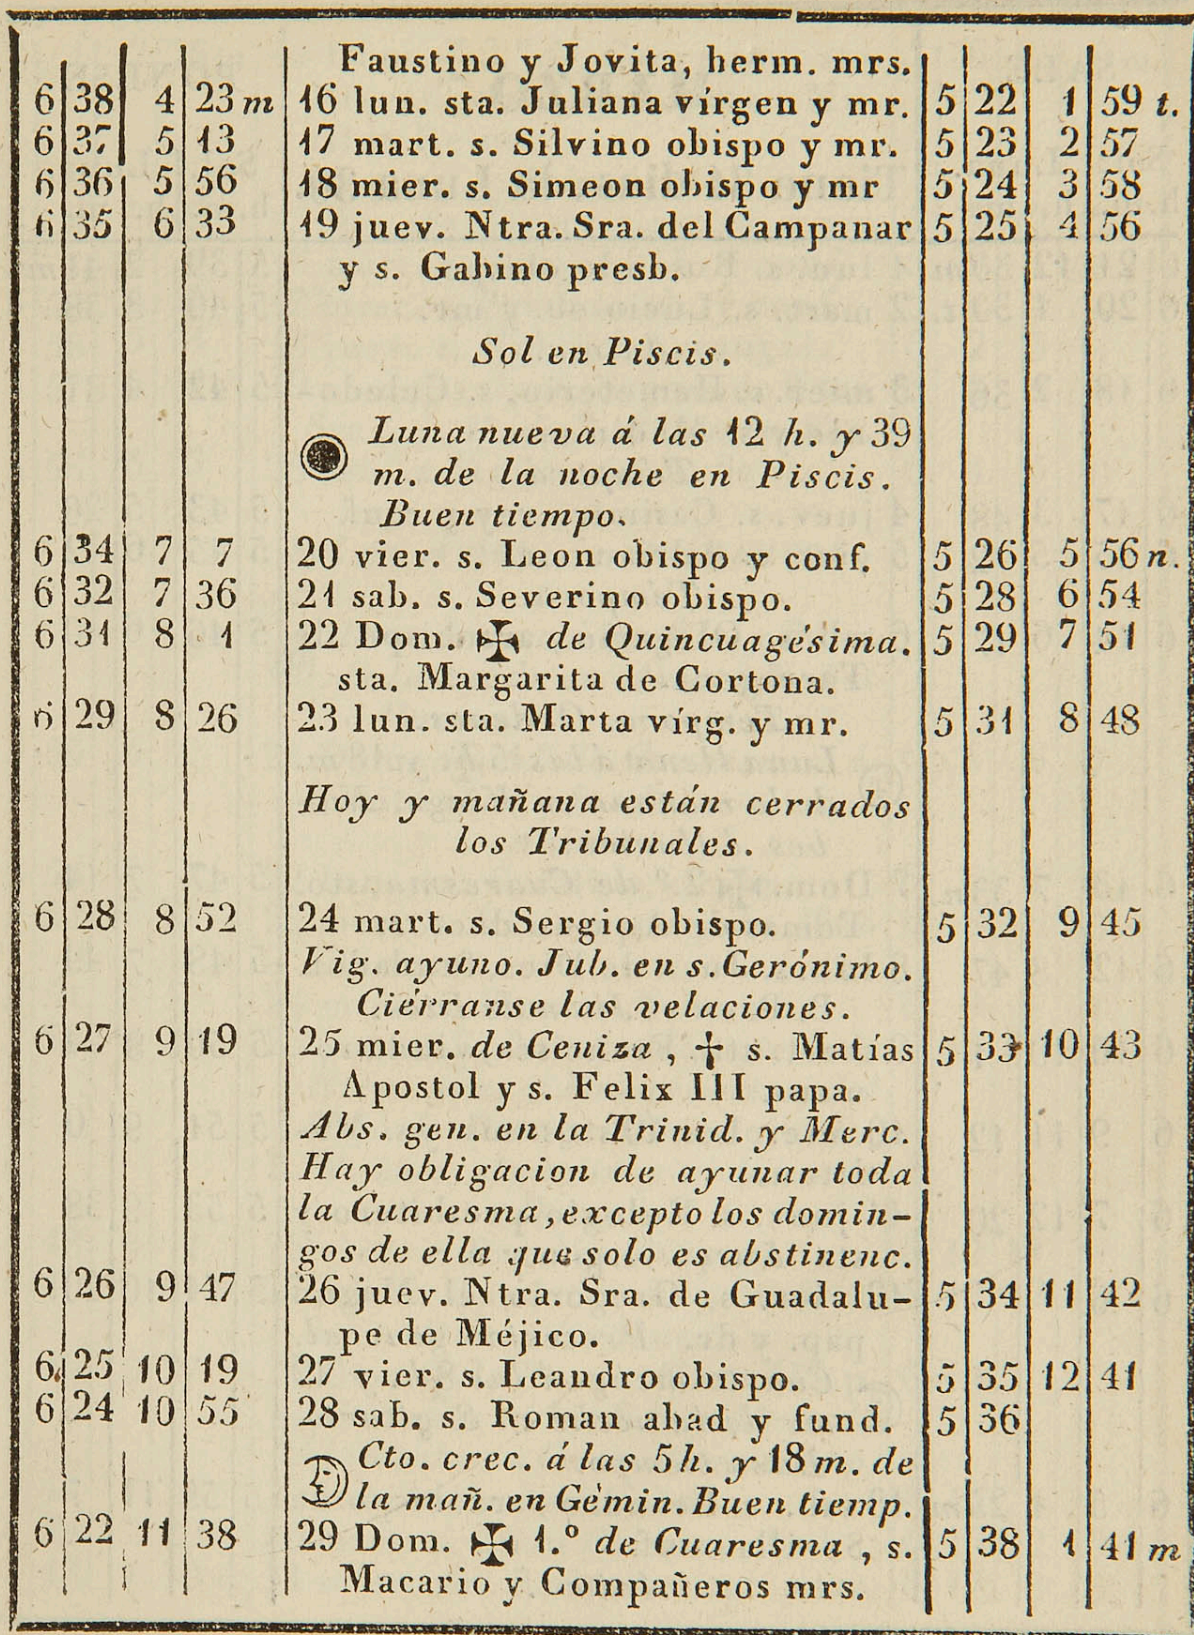 Faustino y Jovita, herm. mrs.
6 38 4 23 m 16 lun. sta. Juliana vírgen y mr. 5 22 1 59 t.
6 37 5 13 17 mart. s. Silvino obispo y mr. 5 23 2 57
6 36 5 56 18 mier. s. Simeon obispo y mr 5 24 3 58
6 35 6 33 19 juev. Ntra. Sra. del Campanar 5 25 4 56
y s. Gabino presb.
Sol en Piscis.
Luna nueva á las 12 h. y 39
m. de la noche en Piscis.
Buen tiempo.
6 34 7 7 20 vier. s. Leon obispo y conf. 5 26 5 56 n.
6 32 7 36 21 sab. s. Severino obispo. 5 28 6 54
6 31 8 1 22 Dom. ✠ de Quincuagésima. 5 29 7 51
sta. Margarita de Cortona.
6 29 8 26 23 lun. sta. Marta vírg. y mr. 5 31 8 48
Hoy y mañana están cerrados
los Tribunales.
6 28 8 52 24 mart. s. Sergio obispo. 5 32 9 45
Vig. ayuno. Jub. en s. Gerónimo.
Ciérranse las velaciones.
6 27 9 19 25 mier. de Ceniza , † s. Matías 5 33 10 43
Apostol y s. Felix III papa.
Abs. gen. en la Trinid. y Merc.
Hay obligacion de ayunar toda
la Cuaresma, excepto los domin-
gos de ella que solo es abstinenc.
6 26 9 47 26 juev. Ntra. Sra. de Guadalu- 5 34 11 42
pe de Méjico.
6 25 10 19 27 vier. s. Leandro obispo. 5 35 12 41
6 24 10 55 28 sab. s. Roman abad y fund. 5 36
Cto. crec. á las 5 h. y 18 m. de
la mañ. en Gémin. Buen tiemp.
6 22 11 38 29 Dom. ✠ 1.º de Cuaresma , s. 5 38 1 41 m
Macario y Compañeros mrs.